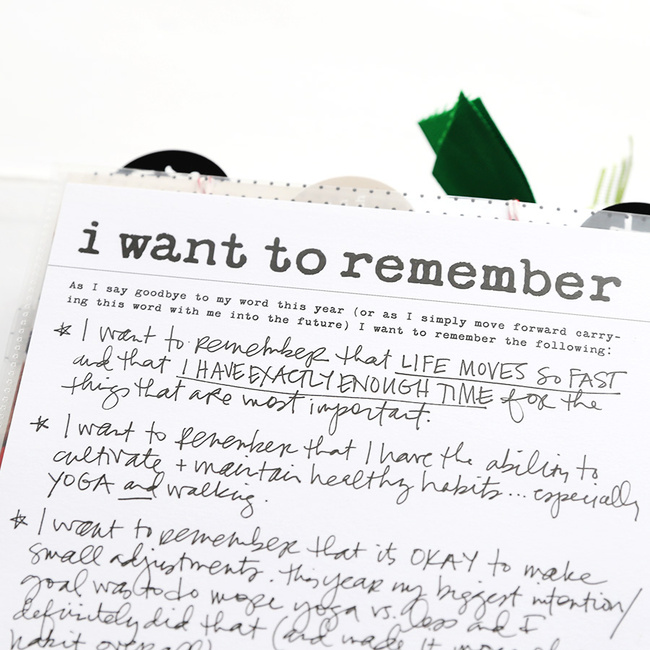 i want to remember
As I say goodbye to my word this year (or as I simply move forward carry-
ing this word with me into the future) I want to remember the following:
* I want to remember that LIFE MOVES SO FAST
and that I HAVE EXACTLY ENOUGH TIME for the
things that are most important.
* I want to remember that I have the ability to
cultivate + maintain healthy habits... especially
YOGA and walking.
* I want to remember that it is OKAY to make
small adjustments. This year my biggest intention/
goal was to do more yoga vs. less and I
definitely did that (and made it more of
habit overall)